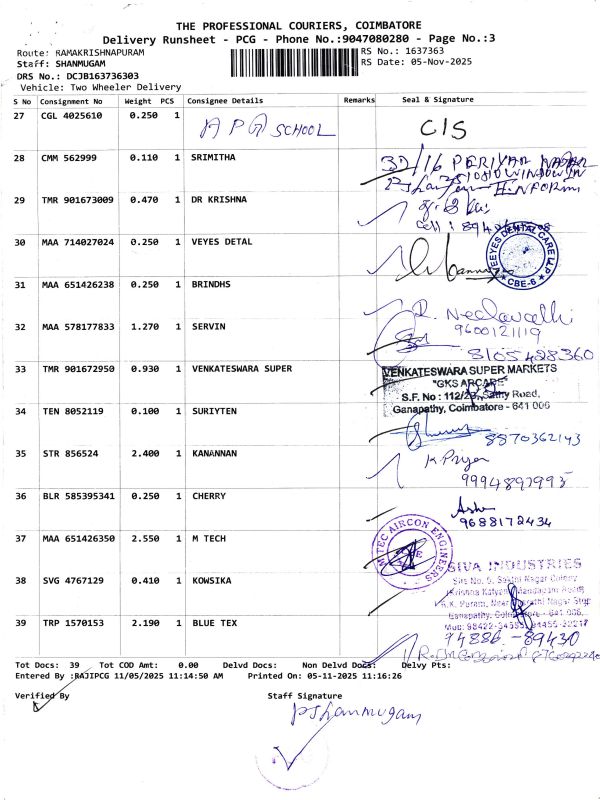 THE PROFESSIONAL COURIERS, COIMBATORE
Delivery Runsheet - PCG - Phone No.:9047080280 - Page No.:3
Route: RAMAKRISHNAPURAM RS No.: 1637363
Staff: SHANMUGAM RS Date: 05-Nov-2025
DRS No.: DCJB163736303
Vehicle: Two Wheeler Delivery
S No Consignment No Weight PCS Consignee Details Remarks Seal & Signature
27 CGL 4025610 0.250 1 APG SCHOOL C/S
28 CMM 562999 0.110 1 SRIMITHA 32/16 PERIYAR NAGAR
29 TMR 901673009 0.470 1 DR KRISHNA
30 MAA 714027024 0.250 1 VEYES DETAL
VEEYES DENTAL CARE LLP CBE-6
31 MAA 651426238 0.250 1 BRINDHS
R. Neelavathi
9600121119
32 MAA 578177833 1.270 1 SERVIN
8105428360
33 TMR 901672950 0.930 1 VENKATESWARA SUPER
VENKATESWARA SUPER MARKETS
"GKS ARCADE"
S.F. No : 112/2B, Sathy Road,
Ganapathy, Coimbatore - 641 006
34 TEN 8052119 0.100 1 SURIYTEN
8870362143
35 STR 856524 2.400 1 KANANNAN
K. Priya
9994897995
36 BLR 585395341 0.250 1 CHERRY
9688172434
37 MAA 651426350 2.550 1 M TECH
M TEC AIRCON ENGINEERS
38 SVG 4767129 0.410 1 KOWSIKA
SIVA INDUSTRIES
39 TRP 1570153 2.190 1 BLUE TEX
94886 - 89430
Tot Docs: 39 Tot COD Amt: 0.00 Delvd Docs: Non Delvd Docs: Delvy Pts:
Entered By :RAJIPCG 11/05/2025 11:14:50 AM Printed On: 05-11-2025 11:16:26
Verified By Staff Signature
P Shanmugam